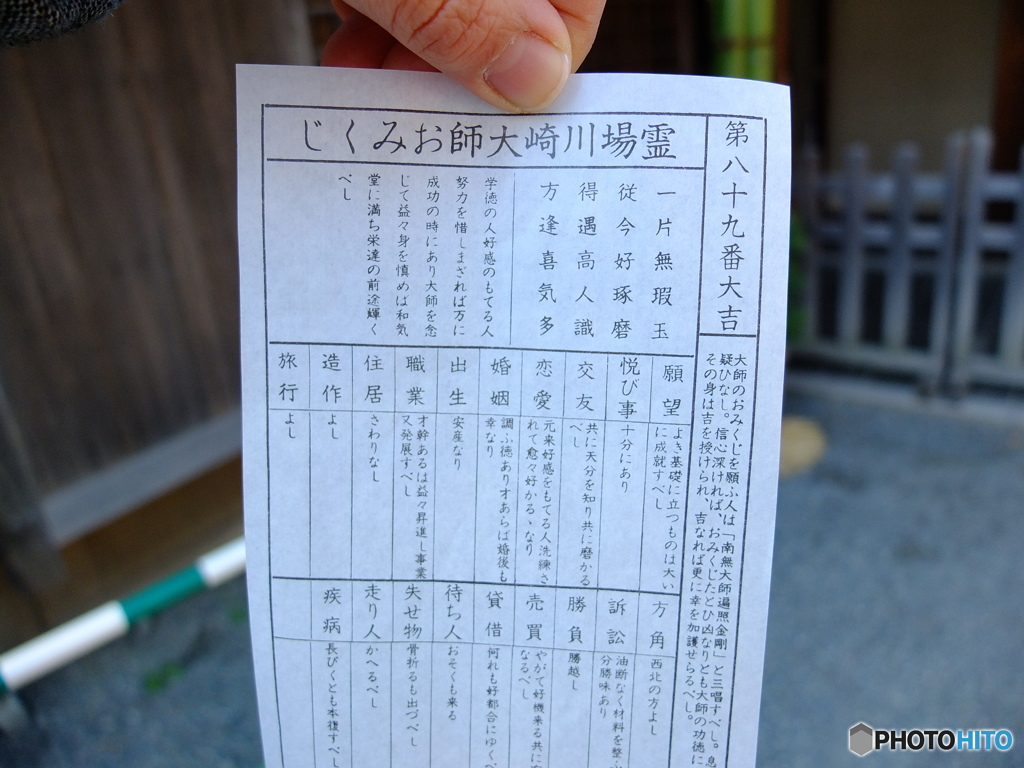 霊場川崎大師おみくじ
第八十九番大吉
大師のおみくじを願ふ人は「南無大師遍照金剛」と三唱すべし。息
疑ひなし。信心深ければ、おみくじたとひ凶なりとも大師の功徳に
その身は吉を授けられ、吉なれば更に幸を加護せらるべし。
一片無瑕玉
従今好琢磨
得遇高人識
方逢喜気多
学徳の人好感のもてる人
努力を惜しまざれば万に
成功の時にあり大師を念
じて益々身を慎めば和気
堂に満ち栄達の前途輝く
べし
願望
よき基礎に立つものは大い
に成就すべし
悦び事
十分にあり
交友
共に天分を知り共に磨かる
べし
恋愛
元来好感をもてる人洗練さ
れて愈々好かるゝなり
婚姻
調ふ徳あり才あらば婚後も
幸なり
出生
安産なり
職業
才幹あるは益々昇進し事業
又発展すべし
住居
さわりなし
造作
よし
旅行
よし
方角
西北の方よし
訴訟
油断なく材料を整
分勝味あり
勝負
勝越し
売買
やがて好機来る共に
なるべし
貸借
何れも好都合にゆく
待ち人
おそくも来る
失せ物
骨折るも出づべし
走り人
かへるべし
疾病
長びくとも本復すべし
PHOTOHITO